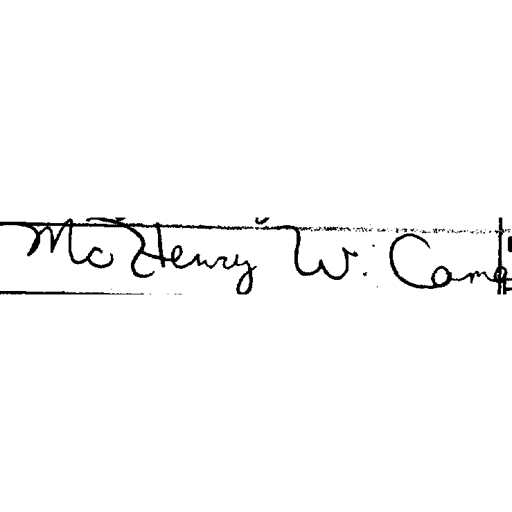 McHenry W. Cam